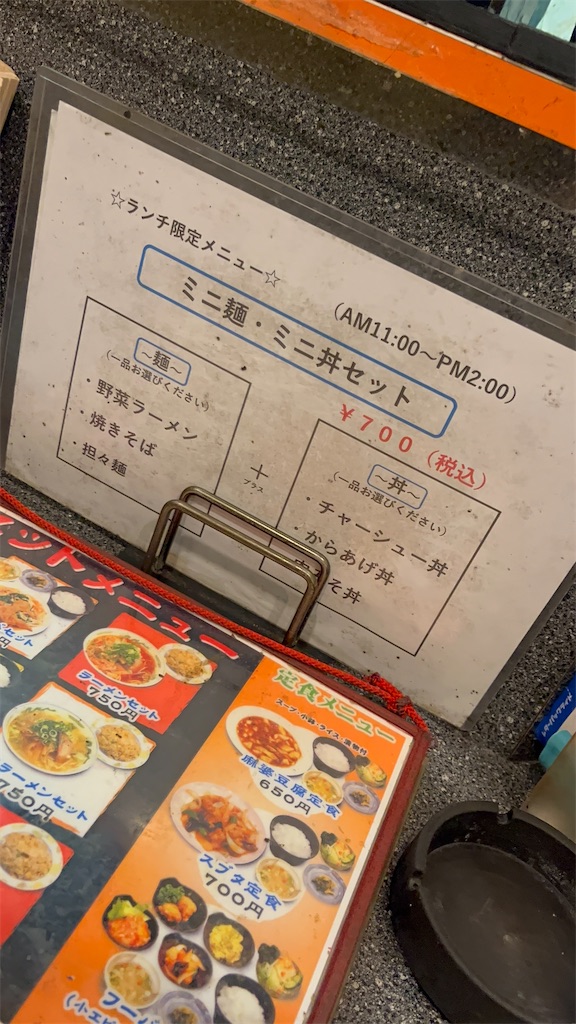 ☆ランチ限定メニュー☆
(AM11:00～PM2:00)
ミニ麺・ミニ丼セット
￥700（税込）
～麺～
（一品お選びください）
・野菜ラーメン
・焼きそば
・担々麺
＋
プラス
～丼～
（一品お選びください）
・チャーシュー丼
・からあげ丼
そ丼
ットメニュー
セット
ラーメンセット
750円
ラーメンセット
750円
定食メニュー
スープ・小鉢・ライス・漬物付
麻婆豆腐定食
650円
スブタ定食
700円